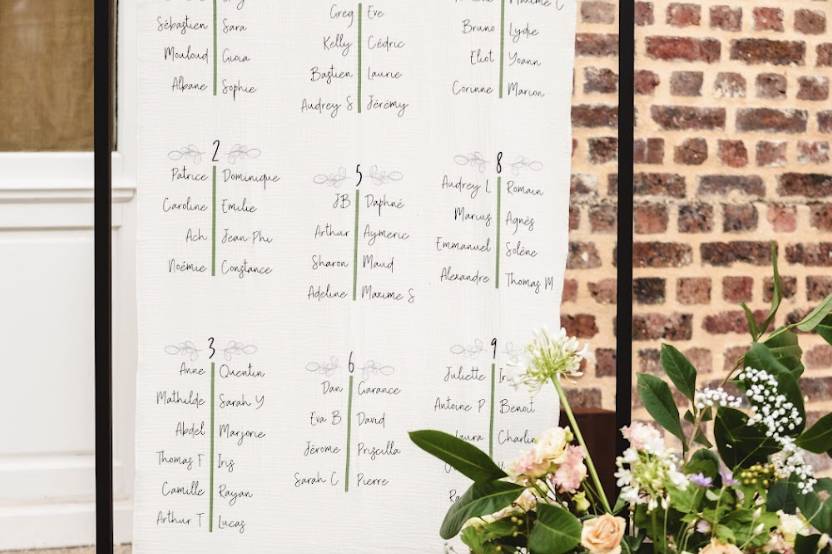 Sébastien Sara
Mouloud Gioia
Albane Sophie
2
Patrice Dominique
Caroline Emilie
Ach Jean-Phi
Noémie Constance
3
Anne Quentin
Mathilde Sarah Y
Abdel Marjorie
Thomas F Iris
Camille Rayan
Arthur T Lucas
Greg Eve
Kelly Cédric
Bastien Laurie
Audrey S Jérémy
5
JB Daphné
Arthur Aymeric
Sharon Maud
Adeline Maxime S
6
Dan Garance
Eva B David
Jérome Priscilla
Sarah C Pierre
Maxime C
Bruno Lydie
Eliot Yoann
Corinne Marion
8
Audrey L Romain
Marius Agnès
Emmanuel Solène
Alexandre Thomas M
9
Juliette
Antoine P Benoit
Laura